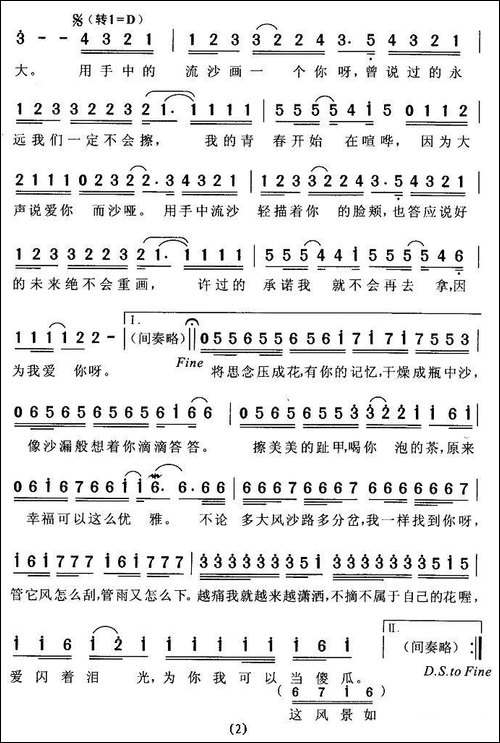 𝄋（转1=D）
3 - - 4 3 2 1 | 1 2 3 3 2 2 4 3. 5 4 3 2 1 |
大。 用手中的 流沙画一 个你呀,曾说过的永
1 2 3 3 2 2 3 2 1. 1 1 1 1 | 5 5 5 5 5 4 1 5 0 1 1 2 |
远我们一定不会擦, 我的青 春开始 在喧哗, 因为大
2 1 1 1 0 2 3 2 2. 3 4 3 2 1 | 1 2 3 3 2 2 3 3. 5 4 3 2 1 |
声说爱你 而沙哑。 用手中流沙 轻描着你 的脸颊,也答应说好
1 2 3 3 2 2 3 2 1. 1 1 1 1 | 5 5 5 5 4 4 1 5 5 5 4 6 |
的未来绝不会重画, 许过的 承诺我 就不会再去 拿,因
1 1 1 1 2 2 - | I. (间奏略) 0 5 5 6 5 5 6 5 5 6 5 6 1 7 1 7 1 7 |
为我爱 你呀。 Fine 将思念压成花,有你的记忆,干燥成瓶中沙,
0 6 5 6 5 6 5 6 5 6 6 1 6 6 | 0 6 5 6 5 6 5 6 5 3 3 2 2 1 1 6 |
像沙漏般想着你滴滴答答。 擦美美的趾甲,喝你 泡的茶,原来
0 6 1 6 7 6 6 7 1 1 6. 6. 6 6 | 6 7 6 6 7 6 6 7 6 6 7 6 6 6 6 6 7 |
幸福可以这么优 雅。 不论 多大风沙路多分岔,我一样找到你呀,
1 6 1 7 7 7 1 6 1 7 7 7 | 3 3 3 3 3 3 3 3 3 3 3 3 3 5 1 5 |
管它风怎么刮,管雨又怎么下。越痛我就越来越潇洒,不摘不属于自己的花喔,
1 1 6 1 2 1 1 1 1 1 1 6 1 | II. (间奏略) :‖
爱闪着泪 光,为你我可以 当傻瓜。 D.S.to Fine
( 6 7 1 6 )
这风景如
(2)